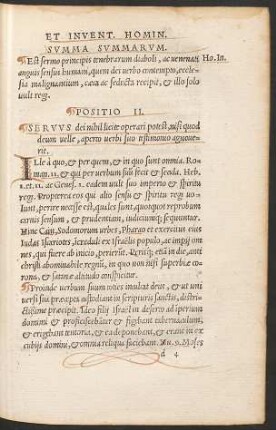 ET INVENT. HOMIN.
SVMMA SVMMARVM.
Est sermo principis tenebrarum diaboli, ac uenenati Ho. In.
anguis sensus humani, quem dei uerbo contempto, eccle-
sia malignantium, cæca ac seducta recepit, & illo solo
uult regi.
POSITIO II.
SERVVS dei nihil licite operari potest, nisi quod
deum uelle, aperto uerbi sui testimonio agnoue-
rit.
ILle à quo, & per quem, & in quo sunt omnia. Ro-
ma. 11. & qui per uerbum suũ fecit & secula. Heb.
1. et. 11. ac Genes. 1. eadem uult suo imperio & spiritu
regi. Propterea eos qui alio sensu & spiritu regi uo-
lunt, perire necesse est, quales sunt, quotquot reprobum
carnis sensum, & prudentiam, iudiciumq; sequuntur.
Hinc Cain, Sodomorum urbes, Pharao & exercitus eius
Iudas Iscariotes, Icredulus ex Israelis populo, ac impij om-
nes, qui fuere ab initio, perierũt. Peritq; etiã in die, anti
christi abominabile regnũ, in quo non nisi superbiæ co-
rona, & satanæ altitudo conspicitur.
Proinde uerbum suum toties inculcat deus, & ut uni
uersi sua præcepta custodiant in scripturis sanctis, distri-
ctissime præcepit. Ideo filij Israel in deserto ad iperium
domini & proficiscebãtur & figebant tabernaculum,
erigebantq; tentoria, & ea deponebant, & erant in ex
cubijs domini, & omnia relique faciebant. Nu. 9. Moses
d 4